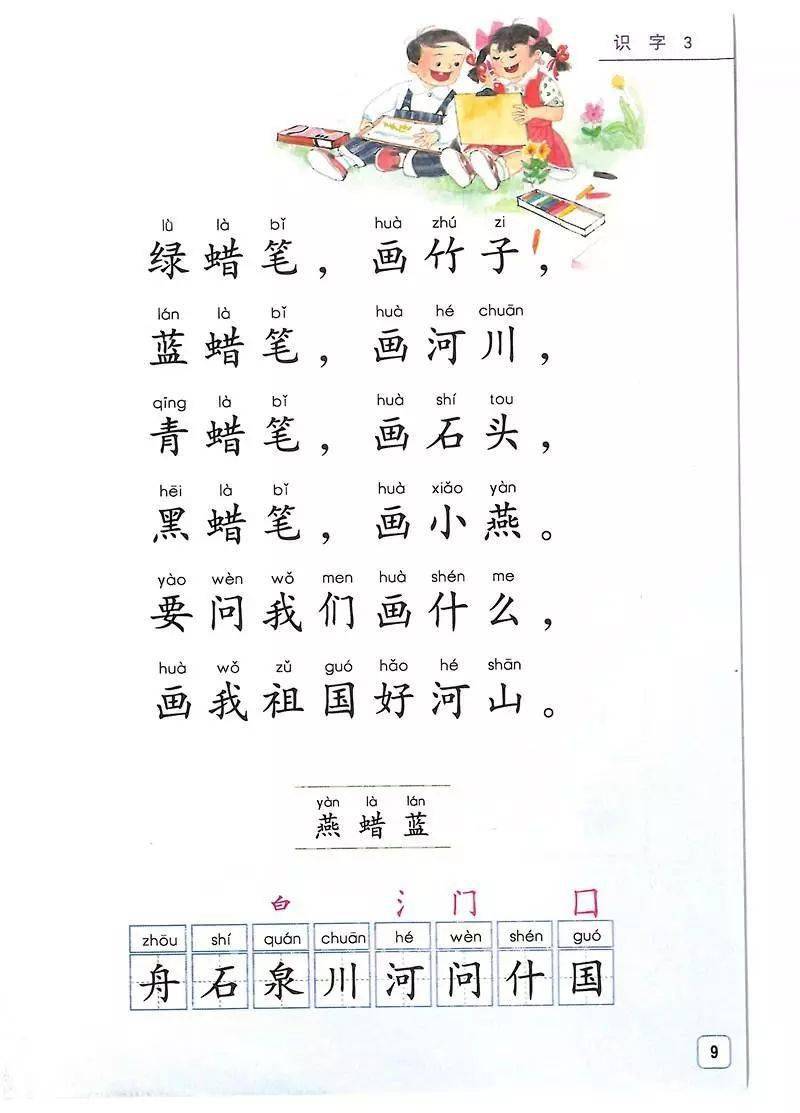 识字3
lǜ là bǐ huà zhú zi
绿蜡笔，画竹子，
lán là bǐ huà hé chuān
蓝蜡笔，画河川，
qīng là bǐ huà shí tou
青蜡笔，画石头，
hēi là bǐ huà xiǎo yàn
黑蜡笔，画小燕。
yào wèn wǒ men huà shén me
要问我们画什么，
huà wǒ zǔ guó hǎo hé shān
画我祖国好河山。
yàn là lán
燕蜡蓝
白 氵 门 囗
zhōu shí quán chuān hé wèn shén guó
舟石泉川河问什国
9